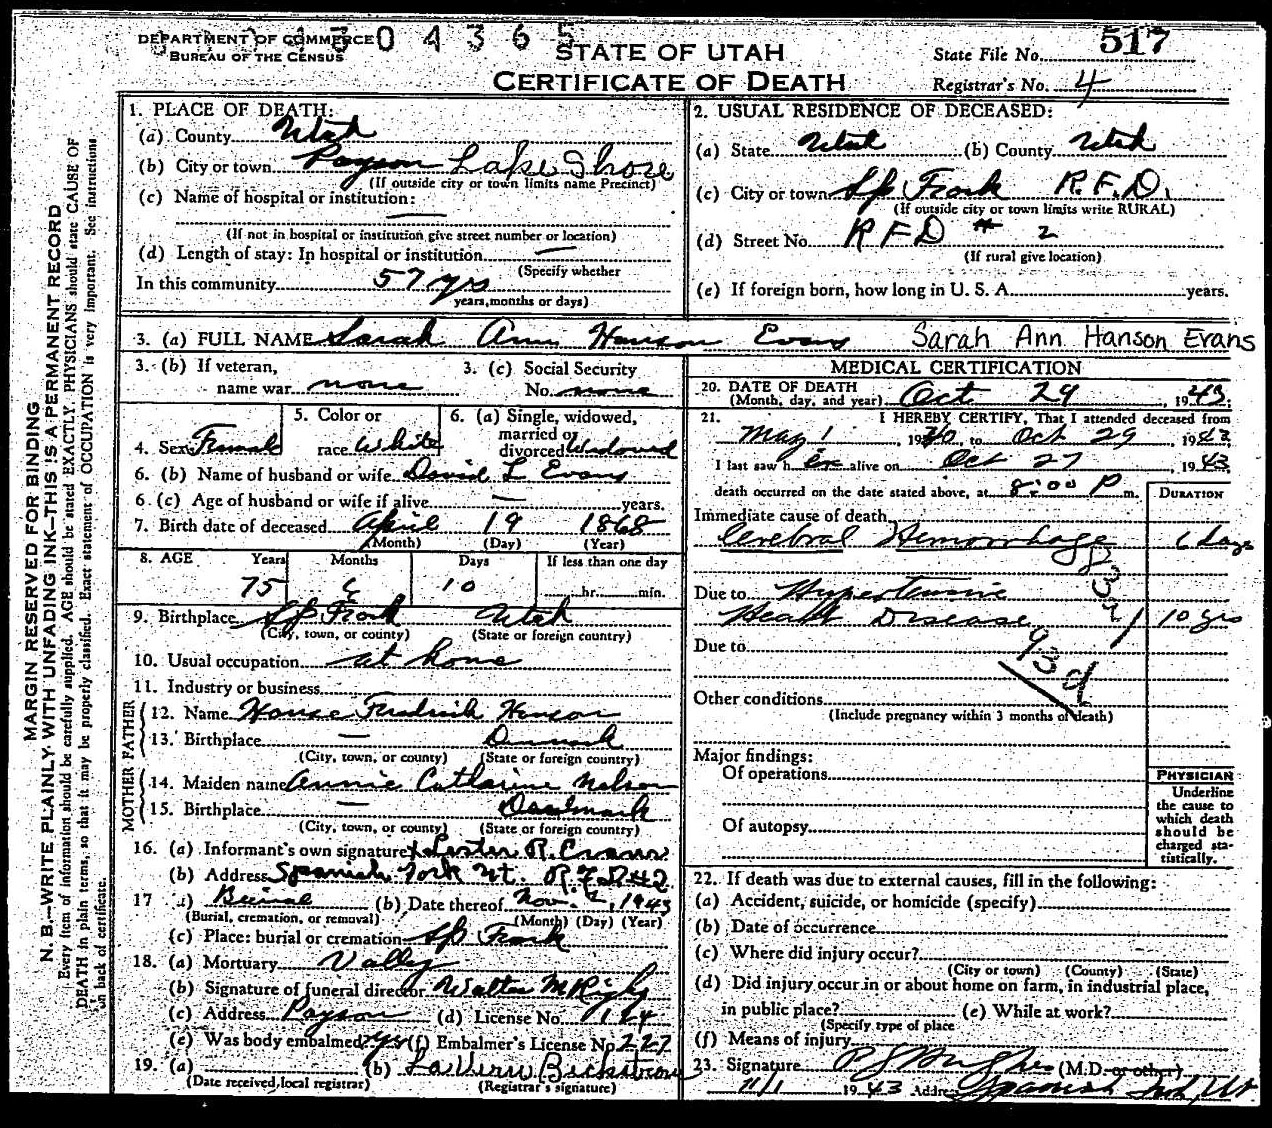 DEPARTMENT OF COMMERCE
BUREAU OF THE CENSUS
04365
STATE OF UTAH
CERTIFICATE OF DEATH
State File No. 517
Registrar's No. 4
MARGIN RESERVED FOR BINDING
N. B.—WRITE PLAINLY WITH UNFADING INK—THIS IS A PERMANENT RECORD
Every item of information should be carefully supplied. AGE should be stated EXACTLY. PHYSICIANS should state CAUSE OF
DEATH in plain terms, so that it may be properly classified. Exact statement of OCCUPATION is very important. See instructions
on back of certificate.
1. PLACE OF DEATH:
(a) County Utah
(b) City or town Payson Lake Shore
(If outside city or town limits name Precinct)
(c) Name of hospital or institution:
(If not in hospital or institution give street number or location)
(d) Length of stay: In hospital or institution
(Specify whether
In this community 57 yrs
years, months or days)
2. USUAL RESIDENCE OF DECEASED:
(a) State Utah (b) County Utah
(c) City or town Sp Fork R.F.D.
(If outside city or town limits write RURAL)
(d) Street No. R F D # 2
(If rural give location)
(e) If foreign born, how long in U. S. A. years.
3. (a) FULL NAME Sarah Ann Hanson Evans Sarah Ann Hanson Evans
3. (b) If veteran,
name war none
3. (c) Social Security
No. none
4. Sex Female
5. Color or
race White
6. (a) Single, widowed,
married or
divorced Widowed
6. (b) Name of husband or wife David L Evans
6. (c) Age of husband or wife if alive — years.
7. Birth date of deceased April 19 1868
(Month) (Day) (Year)
8. AGE Years Months Days If less than one day
75 6 10 hr. min.
9. Birthplace Sp Fork Utah
(City, town, or county) (State or foreign country)
10. Usual occupation at home
11. Industry or business
FATHER
12. Name Fredrick Hanson
13. Birthplace — Denmark
(City, town, or county) (State or foreign country)
MOTHER
14. Maiden name Annie Catharine Nelson
15. Birthplace — Denmark
(City, town, or county) (State or foreign country)
16. (a) Informant's own signature x Lester R. Evans
(b) Address Spanish Fork Ut. R.F.D #2
17 a) Burial (b) Date thereof Nov. 2, 1943
(Burial, cremation, or removal) (Month) (Day) (Year)
(c) Place: burial or cremation Sp Fork
18. (a) Mortuary Valley
(b) Signature of funeral director Walter M Rigby
(c) Address Payson (d) License No. 124
(e) Was body embalmed? yes (f) Embalmer's License No 227
19. (a) (b) LaVern Beckstrom
(Date received, local registrar) (Registrar's signature)
MEDICAL CERTIFICATION
20. DATE OF DEATH
(Month, day, and year) Oct. 29, 1943.
21. I HEREBY CERTIFY, That I attended deceased from
May 1, 1940, to Oct 29, 1943
I last saw her alive on Oct 27, 1943
death occurred on the date stated above, at 8:00 P m.
DURATION
Immediate cause of death
Cerebral Hemorrhage 6 days
Due to Hypertensive
Heart Disease 10 yrs
83a
Due to
93d
Other conditions
(Include pregnancy within 3 months of death)
Major findings:
Of operations
Of autopsy
PHYSICIAN
Underline
the cause to
which death
should be
charged sta-
tistically.
22. If death was due to external causes, fill in the following:
(a) Accident, suicide, or homicide (specify)
(b) Date of occurrence
(c) Where did injury occur?
(City or town) (County) (State)
(d) Did injury occur in or about home on farm, in industrial place,
in public place? (e) While at work?
(Specify type of place
(f) Means of injury
23. Signature Hughes (M.D. or other)
11/1 1943 Address Spanish Fork, Ut.